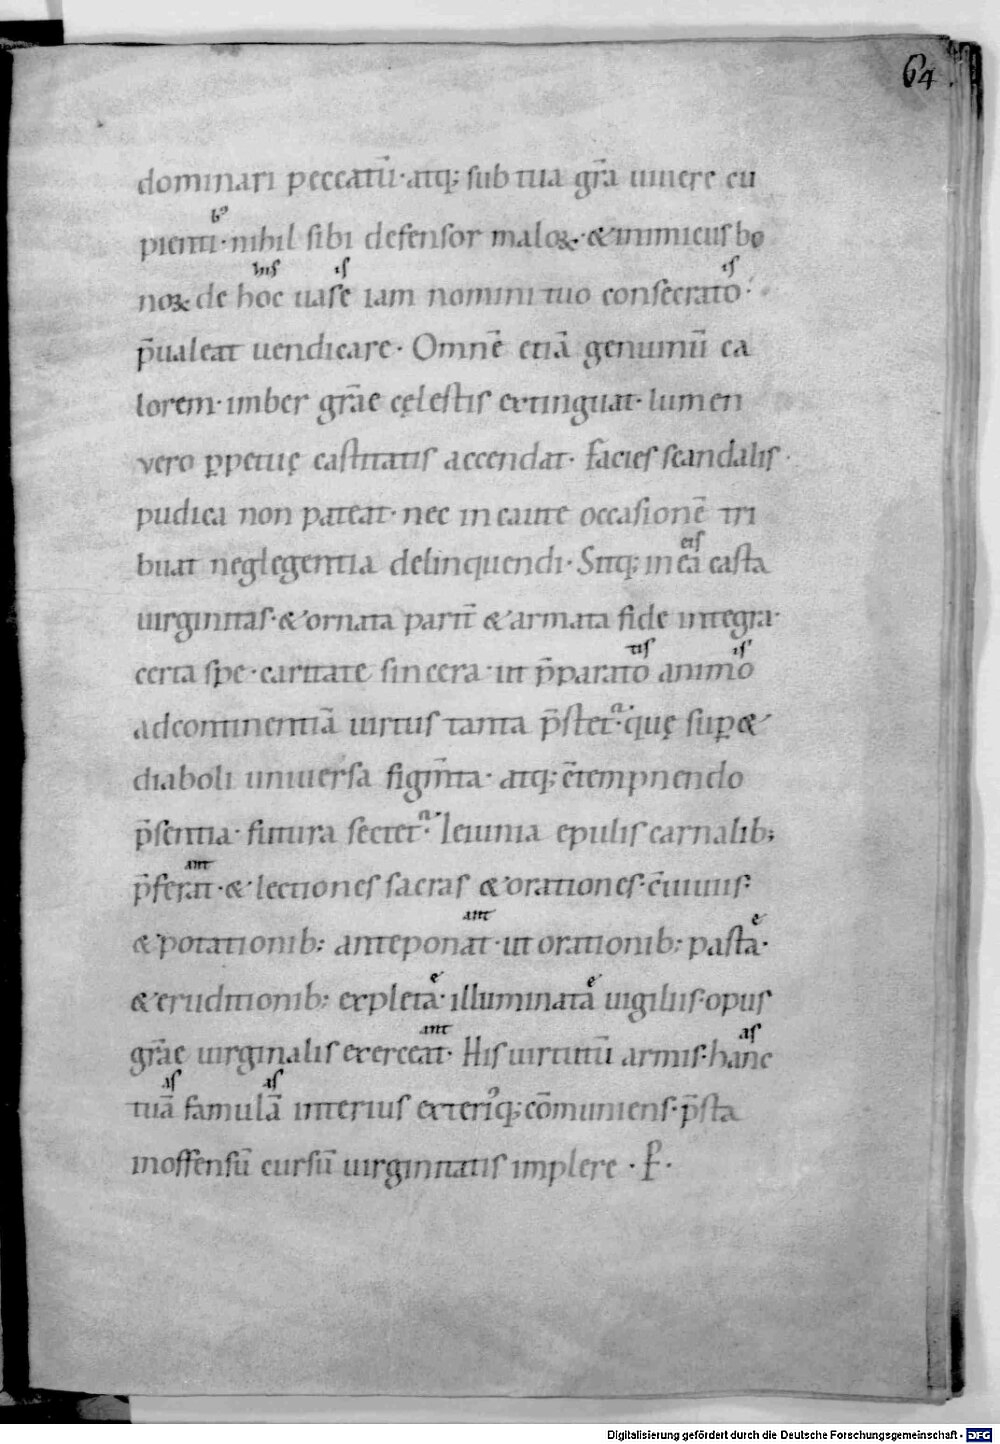 64
dominari peccatū·atq; sub tua grā uiuere cu
pienti·nihil sibi defensor maloꝝ·&inimicus bo
bꝰ
noꝝ de hoc uase iam nomini tuo consecrato·
ins is is
p̄ualeat uendicare· Omnē etiā genuinū ca
lorem·imber grāe cęlestis extinguat·lumen
vero ꝑpetuę castitatis accendat· facies scandalis·
pudica non pateat·nec incaute occasionē tri
buat neglegentia delinquendi·Sitq; in eā casta
eis
uirginitas·&ornata parit̄ &armata fide integra·
certa spe·caritate sincera·ut p̄parato animo
tis is
adcontinentiā uirtus tanta p̄stet᷑·quę suꝑ&
diaboli uniuersa figm̄ta· atq; c̄tempnendo
p̄sentia·futura sectet᷑·Ieiunia epulis carnalib;
p̄ferat·&lectiones sacras &orationes·c̄uiuiis·
ant
&potationib; anteponat·ut orationib; pasta·
ant e
&eruditionib; expleta·illuminata uigiliis·opus
e e
grāe uirginalis exerceat· His uirtutū armis·hanc
ant as
tuā famulā interius exteriꝰq; cōmuniens·p̄sta
as as
inoffensū cursū uirginitatis implere · ꝑ·
Digitalisierung gefördert durch die Deutsche Forschungsgemeinschaft - DFG